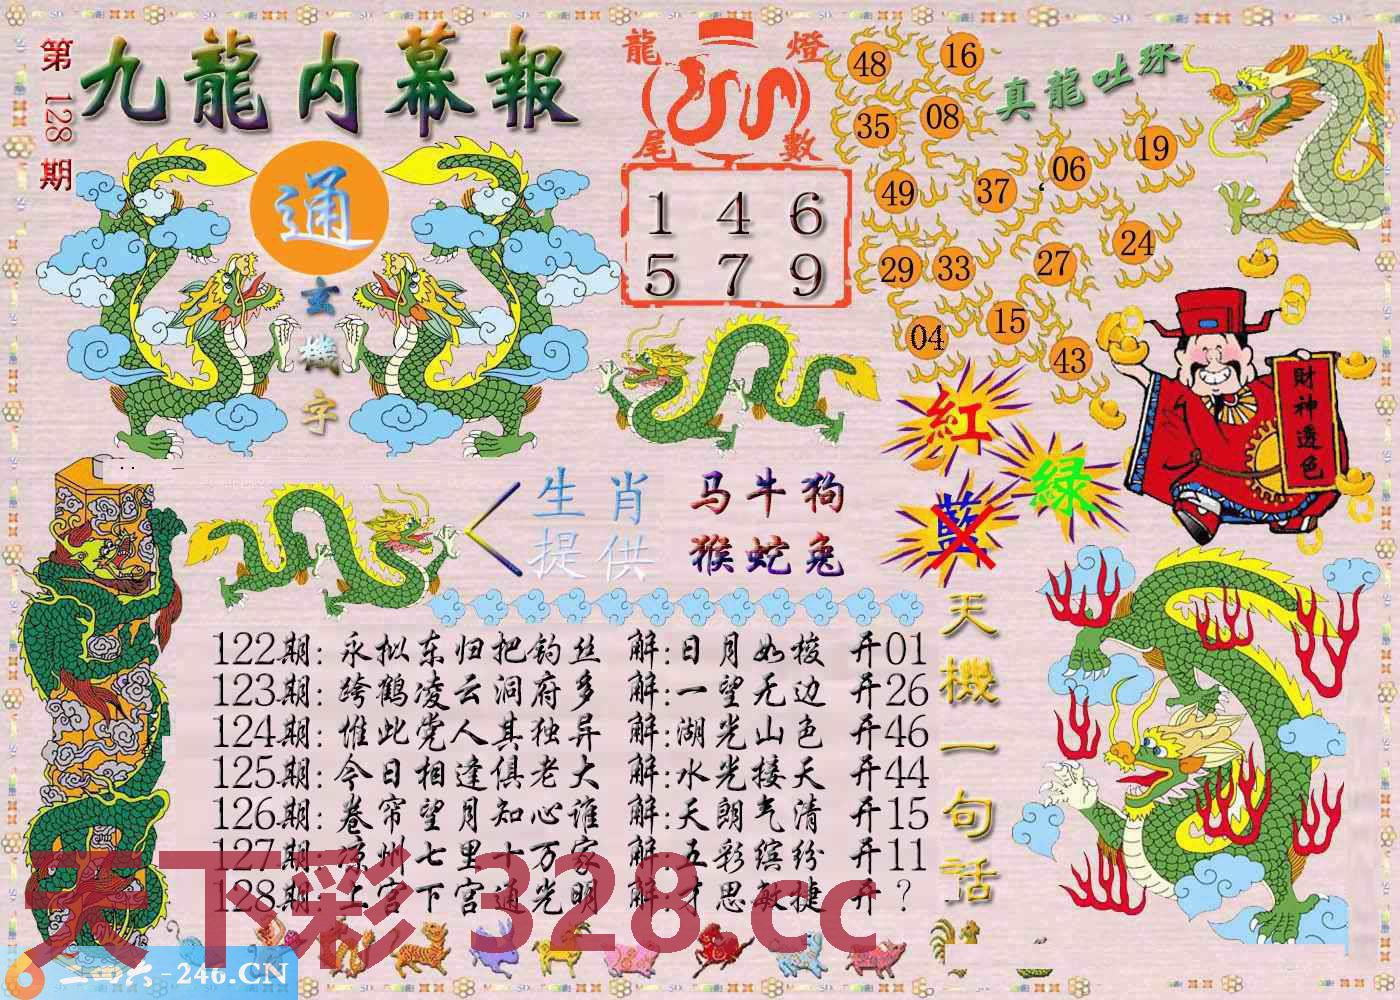 第128期
九龍内幕報
龍燈尾數
1 4 6
5 7 9
真龍吐珠
48 16
35 08
49 37 06 19
29 33 27 24
04 15 43
通
玄機字
財神透色
紅
绿
藍
生肖
提供
马牛狗
猴蛇兔
天機一句話
122期:永拟东归把钓丝 解:日月如梭 开01
123期:跨鹤凌云洞府多 解:一望无边 开26
124期:惟此党人其独异 解:湖光山色 开46
125期:今日相逢俱老大 解:水光接天 开44
126期:卷帘望月知心谁 解:天朗气清 开15
127期:凉州七里十万家 解:五彩缤纷 开11
128期:上宫下宫通光明 解:才思敏捷 开？
天下彩328.cc
二四六-246.CN